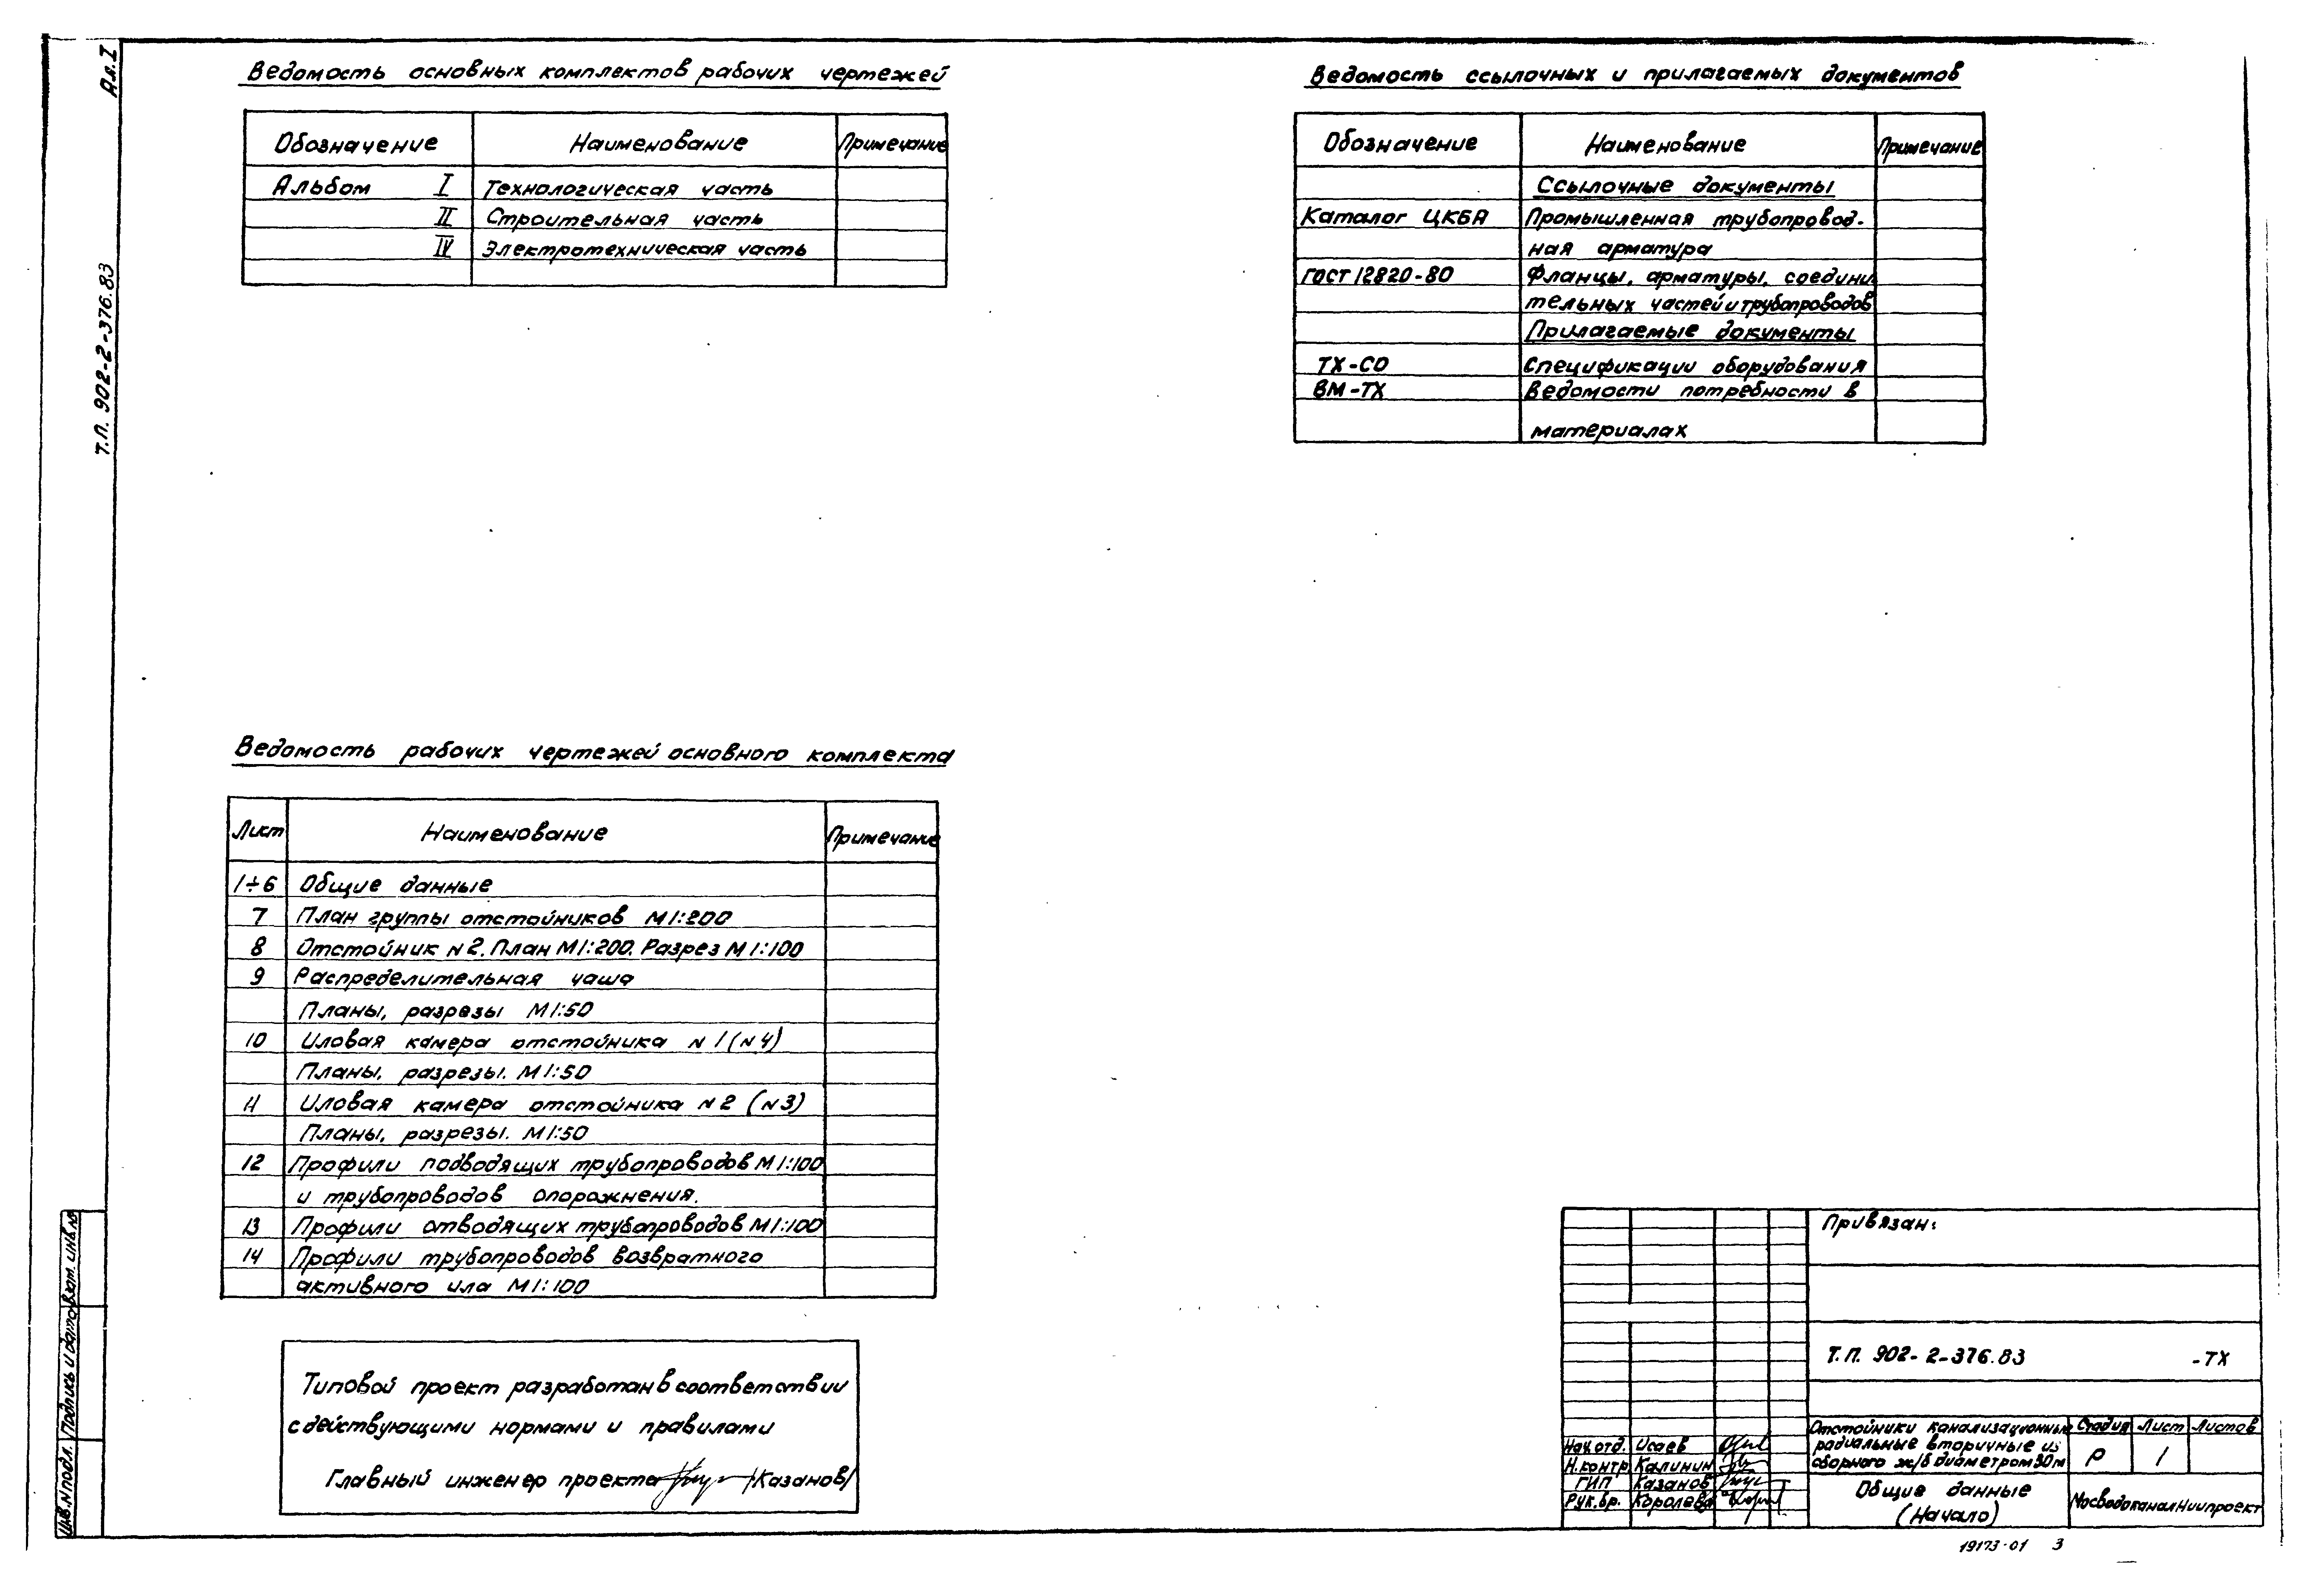 Ал. I
Т.П. 902-2-376.83
Ведомость основных комплектов рабочих чертежей
Обозначение Наименование Примечание
Альбом I Технологическая часть
II Строительная часть
IV Электротехническая часть
Ведомость ссылочных и прилагаемых документов
Обозначение Наименование Примечание
Ссылочные документы
Каталог ЦКБА Промышленная трубопровод-
ная арматура
ГОСТ 12820-80 Фланцы, арматуры, соедини
тельных частей и трубопроводов
Прилагаемые документы
ТХ-СО Спецификации оборудования
ВМ-ТХ Ведомости потребности в
материалах
Ведомость рабочих чертежей основного комплекта
Лист Наименование Примечание
1÷6 Общие данные
7 План группы отстойников М1:200
8 Отстойник N2. План М1:200. Разрез М1:100
9 Распределительная чаша
Планы, разрезы М1:50
10 Иловая камера отстойника N1 (N4)
Планы, разрезы. М1:50
11 Иловая камера отстойника N2 (N3)
Планы, разрезы. М1:50
12 Профили подводящих трубопроводов М1:100
и трубопроводов опорожнения.
13 Профили отводящих трубопроводов М1:100
14 Профили трубопроводов возвратного
активного ила М1:100
Типовой проект разработан в соответствии
с действующими нормами и правилами
Главный инженер проекта /Казанов/
Привязан:
Т.П. 902-2-376.83 -ТХ
Нач.отд. Исаев
Н.контр. Калинин
ГИП Казанов
Рук.бр. Королева
Отстойники канализационные
радиальные вторичные из
сборного ж/б диаметром 30м
Стадия Лист Листов
Р 1
Общие данные
(Начало)
МосводоканалНиипроект
Инв.N подл. Подпись и дата Взам. инв.N
19173-01 3